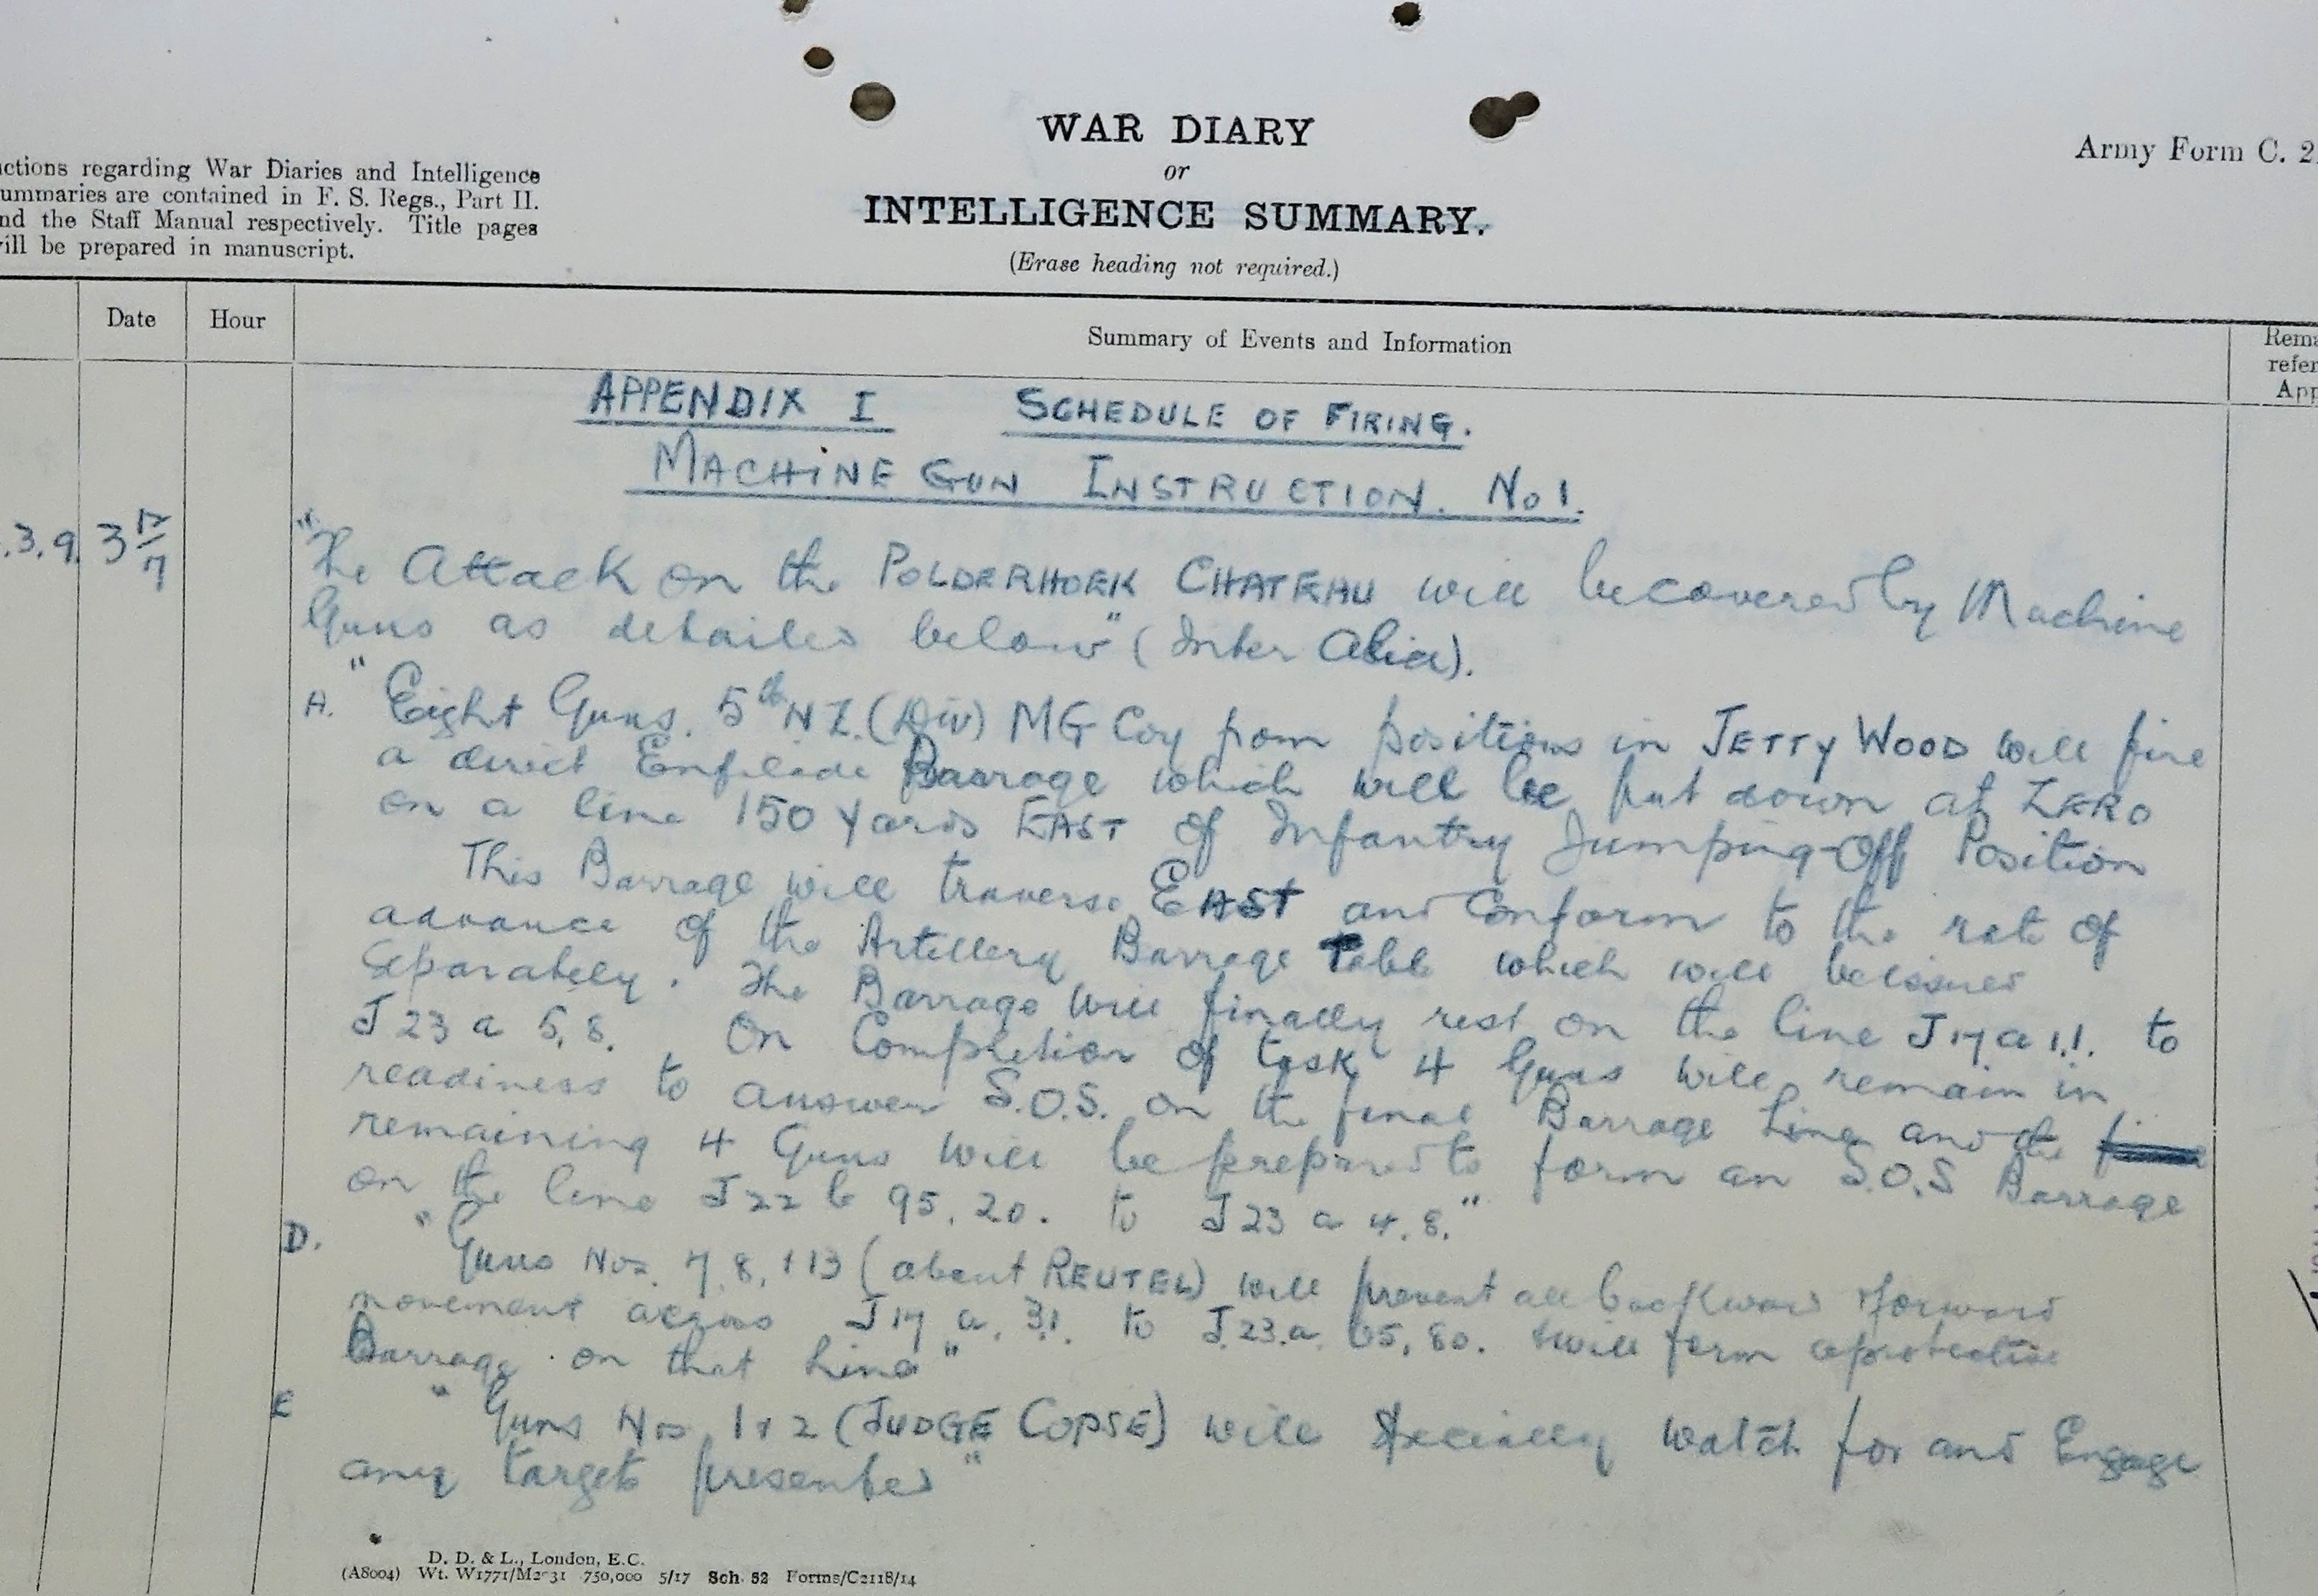 WAR DIARY
or
INTELLIGENCE SUMMARY.
(Erase heading not required.)
Army Form C. 2
ctions regarding War Diaries and Intelligence
ummaries are contained in F. S. Regs., Part II.
nd the Staff Manual respectively. Title pages
ill be prepared in manuscript.
Date Hour Summary of Events and Information
Rema
refer
App
APPENDIX I SCHEDULE OF FIRING.
MACHINE GUN INSTRUCTION. No 1.
.3.9. 3 12/17
"The Attack on the POLDERHOEK CHATEAU will be covered by Machine
Guns as detailed below" (Inter Alia).
A. "Eight Guns. 5th NZ. (Div) MG Coy from positions in JETTY WOOD will fire
a direct Enfilade Barrage which will be put down at ZERO
on a line 150 yards EAST of Infantry Jumping-Off Position
This Barrage will traverse EAST and Conform to the rate of
advance of the Artillery Barrage Table which will be issued
separately. The Barrage will finally rest on the line J 17 a 1.1. to
J 23 a 5,8. On Completion of task 4 Guns will remain in
readiness to answer S.O.S. on the final Barrage Line and the
remaining 4 Guns will be prepared to form an S.O.S Barrage
on the line J 22 b 95,20. to J 23 a 4,8."
D. "Guns Nos. 7, 8, + 13 (about REUTEL) will prevent all backward + forward
movement across J 17 a. 3.1. to J.23.a. 65,80. + will form a protective
Barrage on that Line"
E "Guns Nos. 1 + 2 (JUDGE COPSE) will specially watch for and Engage
any targets presented"
D. D. & L., London, E.C.
(A8004) Wt. W1771/M2031 750,000 5/17 Sch. 52 Forms/C2118/14